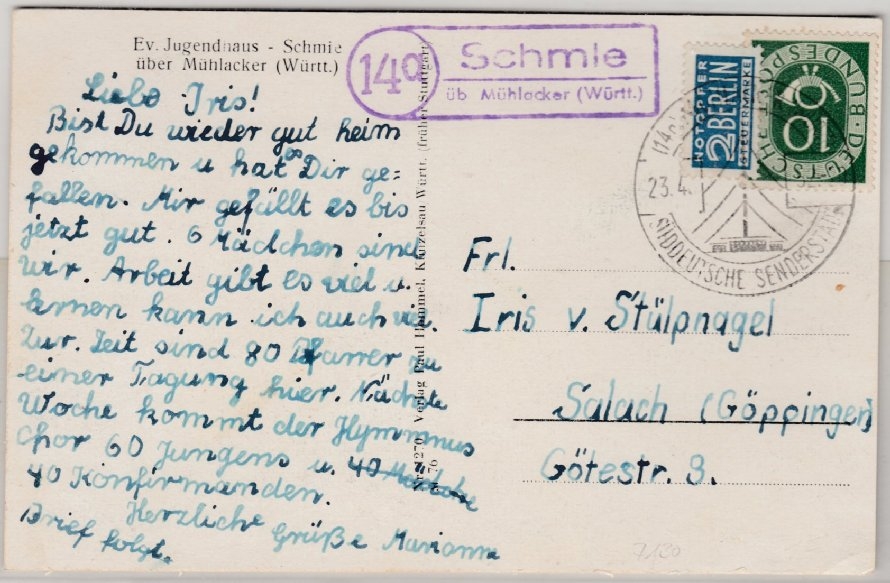 Ev. Jugendhaus - Schmie
über Mühlacker (Württ.)
14a
Schmie
üb Mühlacker (Württ.)
NOTOPFER
2 BERLIN
STEUERMARKE
DEUTSCHE BUNDESPOST
10
(14a)
23.4.
SÜDDEUTSCHE SENDERSTADT
Liebe Iris!
Bist Du wieder gut heim
gekommen u hat es Dir ge=
fallen. Mir gefällt es bis
jetzt gut. 6 Mädchen sind
wir. Arbeit gibt es viel u.
lernen kann ich auch viel.
Zur. Zeit sind 80 Pfarrer zu
einer Tagung hier. Nächste
Woche kommt der Hymmnus
Chor 60 Jungens u. 40
40 Konfirmanden.
Herzliche Grüße Marianne
Brief folgt.
Verlag Paul Hommel, Künzelsau Württ. (früher Stuttgart)
Frl.
Iris v. Stülpnagel
Salach (Göppingen)
Götestr. 3.
7,130